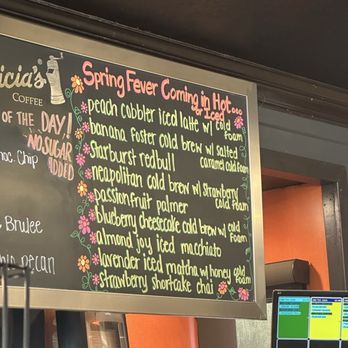 icia's
COFFEE
OF THE DAY!
NO SUGAR
ADDED
Chip
Brulee
pecan
Spring Fever Coming in Hot...
or Iced
peach cobbler iced latte w/ cold
foam
banana foster cold brew w/ salted
caramel cold foam
starburst redbull
neapolitan cold brew w/ strawberry
cold foam
passionfruit palmer
blueberry cheesecake cold brew w/ cold
foam
almond joy iced macchiato
lavender iced matcha w/ honey cold
foam
strawberry shortcake chai